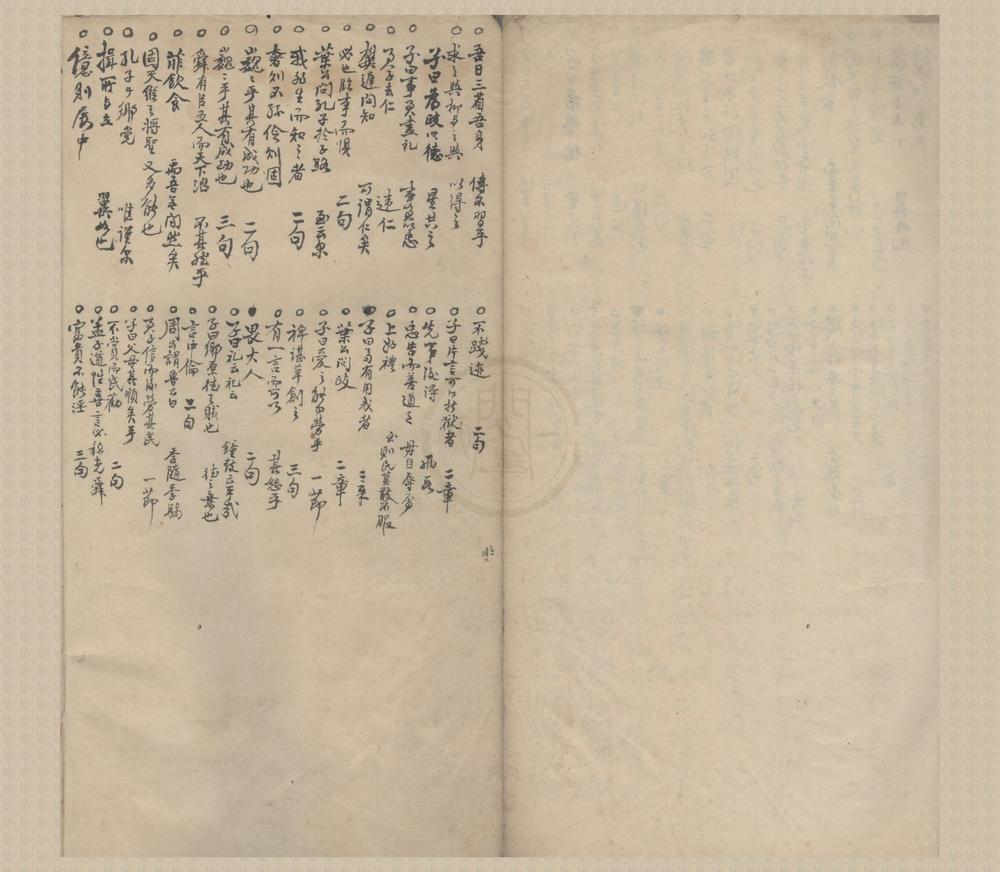 吾日三省吾身 傳不習乎
求之與抑與之與 以得之
子曰為政以德 星共之
子曰事君盡禮 事君以忠
君子去仁 違仁
樊遲問知 可謂仁矣
必也臨事而懼 二句
葉公問孔子於子路 至云尔
我非生而知之者 二句
奢則不孫儉則固
巍巍乎其有成功也 二句
巍巍乎其有成功也 三句
舜有臣五人而天下治 不其然乎
菲飲食 而吾無間然矣
固天縱之將聖 又多能也
孔子於鄉党 唯謹尔
揖所與立 翼如也
億則屢中
不踐迹 二句
子曰片言可以折獄者 二章
先事後得
忠告而善道之 毋自辱焉
上好禮 則民莫敢不服
子曰苟有用我者 二章
葉公問政 二章
子曰愛之能勿勞乎 一節
裨諶草創之 三句
有一言而可以 其恕乎
畏大人 二句
子曰礼云礼云 鐘鼓云乎哉
子曰鄉原德之賊也 德之棄也
言中倫 二句
周公謂魯公曰 季隨季騧
君子信而後勞其民 一節
子曰父母其順矣乎
不賞而民勸 二句
孟子道性善言必稱堯舜
富貴不能淫 三句